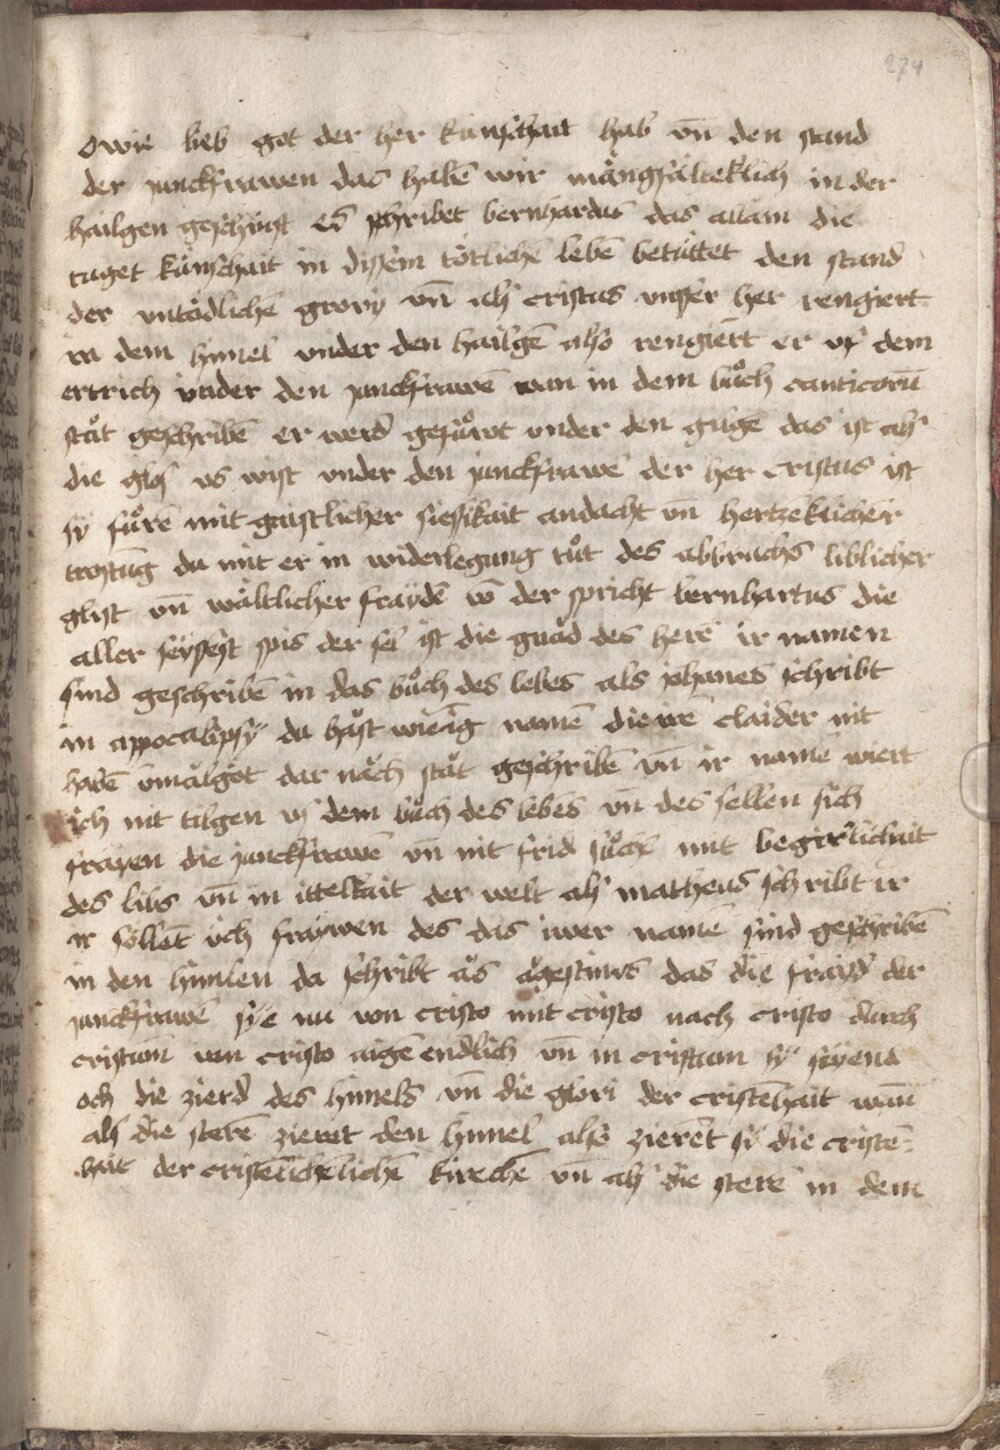 274
o wie lieb got der her künschait hab vn̄ den stand
der junckfrawen das habē wir mångfålteklich in der
hailgen geschrift Es schribet bernhardus das allain die
tuget künschait in dissem tötlichē lebē betüttet den stand
der vntödlichē glory vn̄ als cristus vnsser her rengiert
in dem himel vnder den hailgē also rengiert er vf dem
ertrich vnder den junckfrawē wan in dem bůch canticorū
ståt geschribē er werd gefůrt vnder den gilgē das ist als
die glos vs wist vnder den junckfrawē der her cristus ist
sy fůrē mit gaistlicher siessikait andacht vn̄ hertzeklicher
trostūg da mit er in widerlegung tůt des abbruchs liblicher
glyst vn̄ wåltlicher fraydē vō der spricht bernhartus die
aller seyssest spis der sel ist die gnad des herē ir namen
sind geschribē in das bůch des lebēs als johanes schribt
in appocalipsy du håst wienig namē die ire claider nit
habē vmålgot dar nåch ståt geschribē vn̄ ir namē wiert
ich nit tilgen vs dem bůch des lebēs vn̄ des sellen sich
frayen die junckfrawē vn̄ nit frid sůchē mit begirlichait
des libs vn̄ in ittelkait der welt als matheus schribt ir
ir söllēt üch fraywen des das iwer namē sind geschribē
in den himlen da schribt ås agestinus das die frayd der
junckfrawē sye nu von cristo mit cristo nach cristo durch
cristum vm cristo aigēendlich vn̄ in cristum sy siyend
och die zierd des himels vn̄ die glori der cristēhait wan̄
als die sterē zieret den himel also zierēt si die cristē-
hait der cristēlichēlichē kirchē vn̄ als die sterē in dem